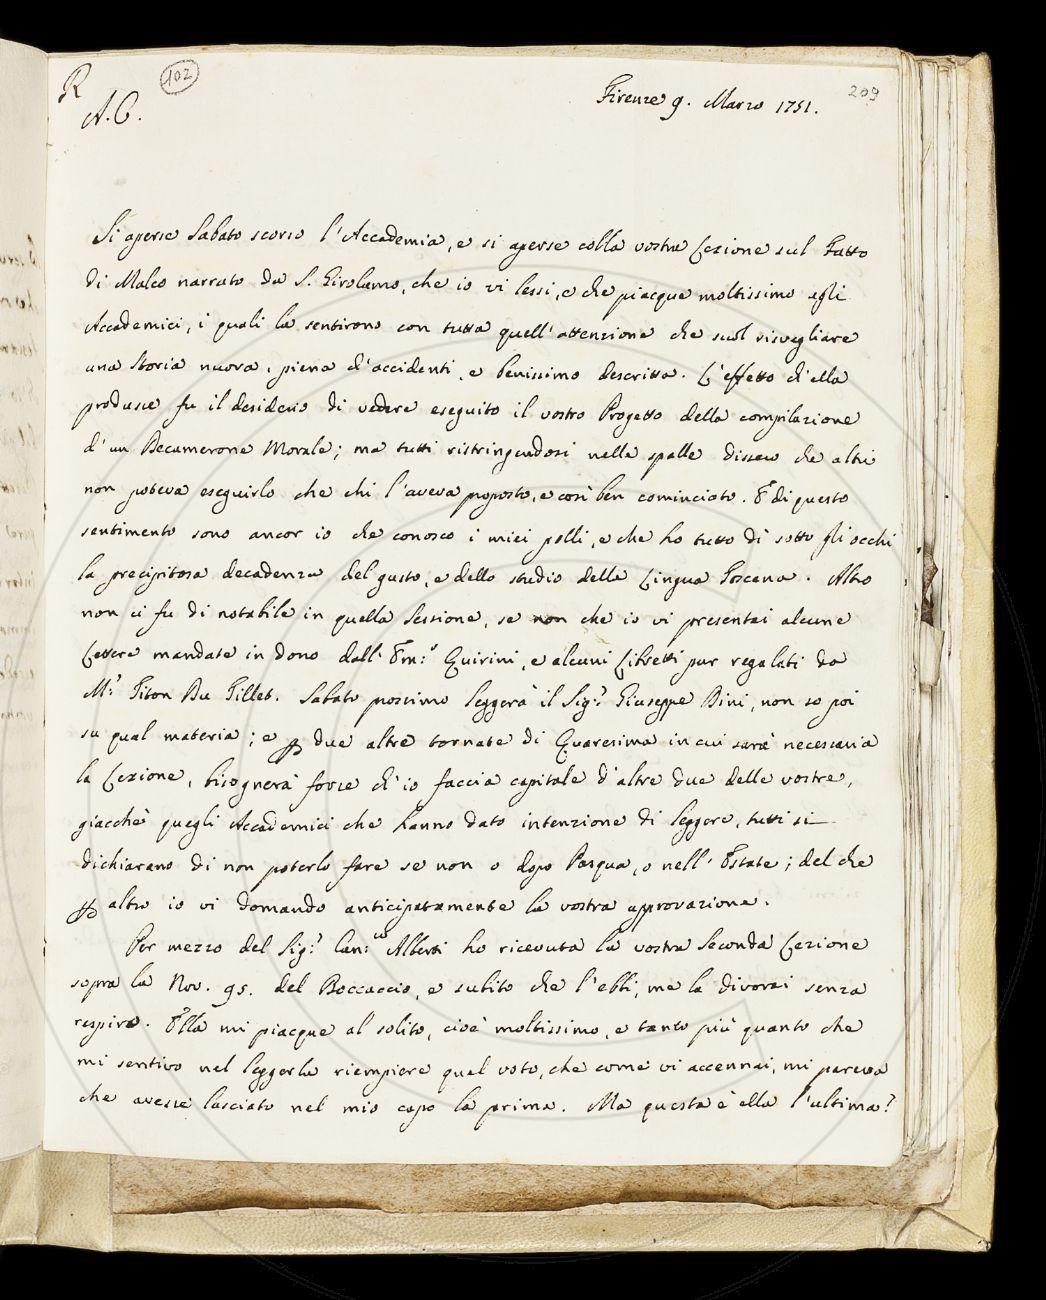 R
102
A. C.
Firenze 9. Marzo 1751.
209
Si aperse Sabato scorso l'Accademia, e si aperse colla vostra Lezione sul Fatto
di Malco narrato da S. Girolamo, che io vi lessi, e che piacque moltissimo agli
Accademici, i quali la sentirono con tutta quell'attenzione che suol risvegliare
una Storia nuova, piena d'accidenti, e benissimo descritta. L'effetto ch'ella
produsse fu il desiderio di vedere eseguito il vostro Progetto della compilazione
d'un Decamerone Morale; ma tutti ristringendosi nelle spalle dissero che altri
non poteva eseguirlo che chi l'aveva proposto, e così ben cominciato. E di questo
sentimento sono ancor io che conosco i miei polli, e che ho tutto dì sotto gli occhi
la precipitosa decadenza del gusto, e dello studio della Lingua Toscana. Altro
non ci fu di notabile in quella Sessione, se non che io vi presentai alcune
Lettere mandate in dono dall' Em:º Quirini, e alcuni Libretti pur regalati da
M:r Titon Du Tillet. Sabato prossimo leggerà il Sig:r Giuseppe Bini, non so poi
su qual materia; e p due altre tornate di Quaresima in cui sarà necessaria
la Lezione, bisognerà forse ch'io faccia capitale d'altre due delle vostre,
giacchè quegli Accademici che hanno dato intenzione di leggere, tutti si
dichiarano di non poterlo fare se non o dopo Pasqua, o nell' Estate; del che
p altro io vi domando anticipatamente la vostra approvazione.
Per mezzo del Sig:r Can:co Alberti ho ricevuta la vostra Seconda Lezione
sopra la Nov. 95. del Boccaccio, e subito che l'ebbi, me la divorai senza
respiro. Ella mi piacque al solito, cioè moltissimo, e tanto più quanto che
mi sentivo nel leggerla riempiere quel voto, che come vi accennai, mi pareva
che avesse lasciato nel mio capo la prima. Ma questa è ella l'ultima?